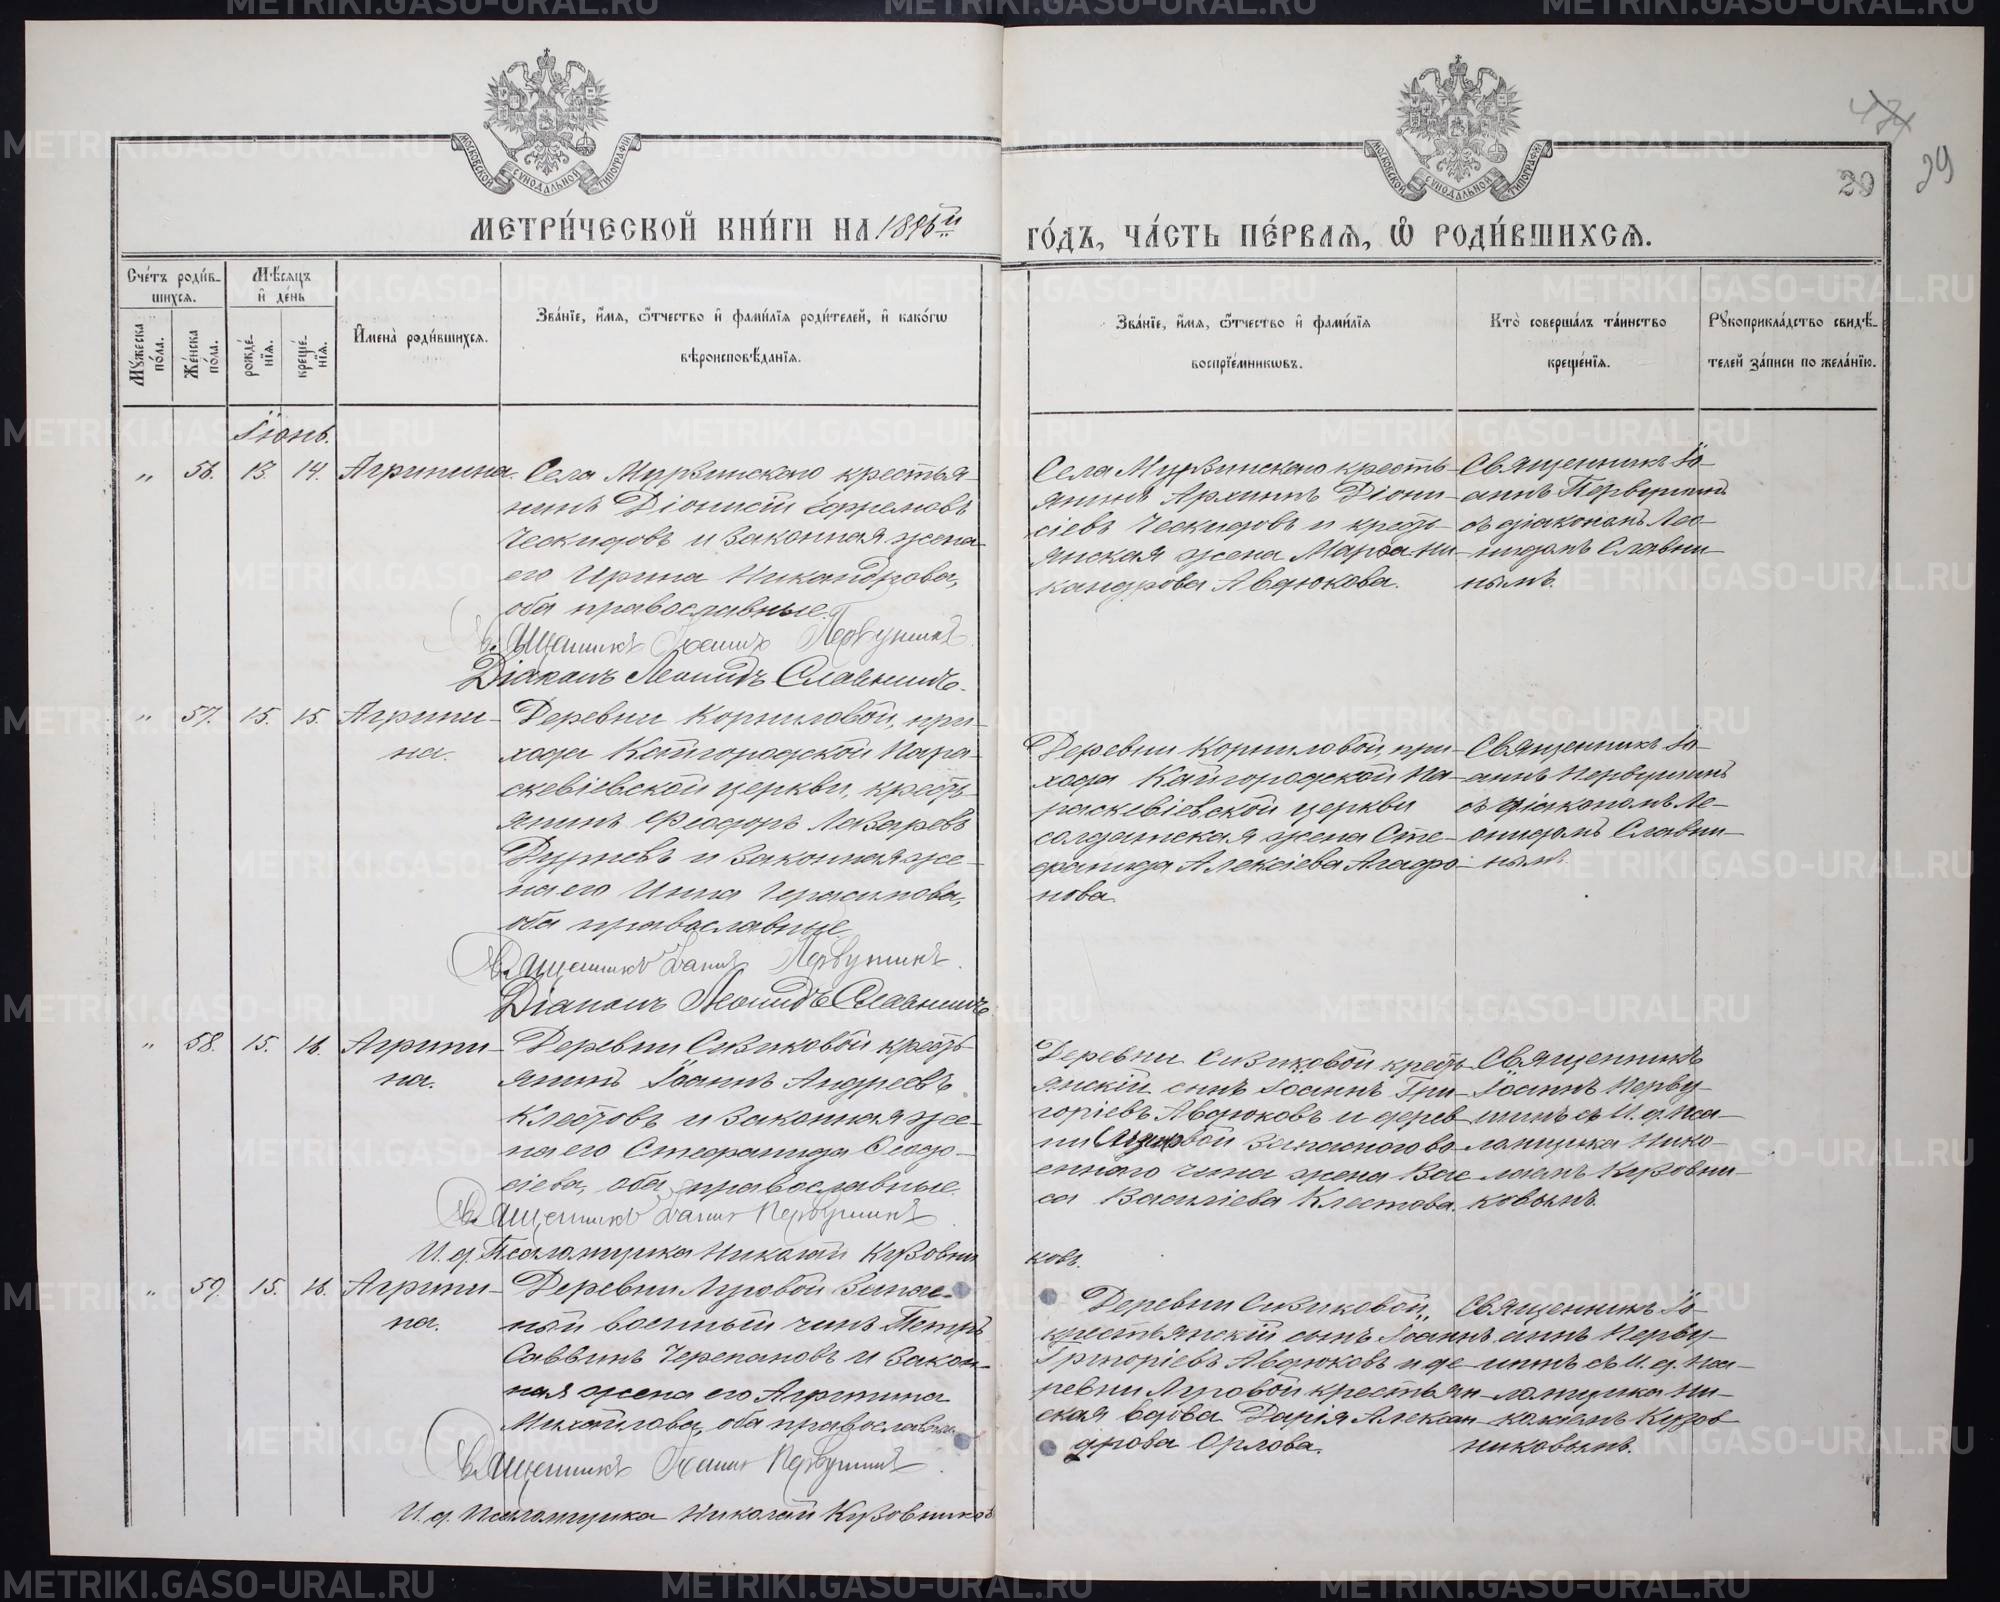 МЕТРИ́ЧЕСКОЙ КНИ́ГИ НА 1896й
ГО́ДЪ, ЧА́СТЬ ПЕ́РВАЯ, Ѡ РОДИ́ВШИХСЯ.
29
МОСКОВСКОЙ СѴНОДАЛЬНОЙ ТИПОГРАФІИ
МОСКОВСКОЙ СѴНОДАЛЬНОЙ ТИПОГРАФІИ
Сче́тъ роди́в-
шихся.
Мꙋжеска по́ла.
Же́нска по́ла.
Мѣ́сяцъ
и де́нь
рожде́-
нїя.
креще́-
нїя.
Имена̀ роди́вшихся.
Зва́нїе, и́мя, ѻ́тчество и фами́лїя роди́телей, и како́гѡ
вѣроисповѣ́данїя.
Зва́нїе, и́мя, ѻ́тчество и фами́лїя
воспрїе́мникѡвъ.
Кто̀ соверша́лъ та́инство
креще́нїя.
Рꙋкоприкла́дство свидѣ́-
телей за́писи по жела́нїю.
Іюнь.
„ 56. 13. 14. Агрипина.
Села Мурзинскаго крестья-
нинъ Діонисій Ефремовъ
Ческидовъ и законная жена
его Ирина Никандрова,
оба православные.
Священникъ Іоаннъ Первушинъ
Діаконъ Леонидъ Славнинъ.
Села Мурзинскаго кресть-
янинъ Архиппъ Діони-
сіевъ Ческидовъ и кресть-
янская жена Марѳа Ни-
кандрова Авдюкова.
Священникъ Іо-
аннъ Первушинъ
съ діакономъ Лео-
нидомъ Славни-
нымъ.
„ 57. 15. 15. Агрипи-
на.
Деревни Корниловой, при-
хода Кайгородской Пара-
скевіевской церкви, кресть-
янинъ Ѳеодоръ Лазаревъ
и законная же-
на его Анна Герасимова,
оба православные.
Священникъ Іоаннъ Первушинъ.
Діаконъ Леонидъ Славнинъ.
Деревни Корниловой, при-
хода Кайгородской Па-
раскевіевской церкви
солдатская жена Сте-
фанида Алексіева Агафо-
нова.
Священникъ Іо-
аннъ Первушинъ
съ діакономъ Ле-
онидомъ Славни-
нымъ.
„ 58. 15. 16. Агрипи-
на.
Деревни Сизиковой кресть-
янинъ Іоаннъ Андреевъ
Клестовъ и законная же-
на его Стефанида Ѳеодо-
сіева, оба православные.
Священникъ Іоаннъ Первушинъ.
И. д. Псаломщика Николай Кузовни
ковъ.
Деревни Сизиковой кресть-
янскій сынъ Іоаннъ Гри-
горіевъ Авдюковъ и дерев-
ни Луговой запаснаго во-
еннаго чина жена Вас
са Василіева Клестова.
Священникъ
Іоаннъ Перву-
шинъ съ И. д. Пса-
ломщика Нико-
лаемъ Кузовни-
ковымъ.
„ 59. 15. 16. Агрипи-
на.
Деревни Луговой запас-
ный военный чинъ Петръ
Саввинъ Черепановъ и закон-
ная жена его Агрипина
Михайлова, оба православные.
Священникъ Іоаннъ Первушинъ.
И. д. Псаломщика Николай Кузовниковъ
Деревни Сизиковой,
крестьянскій сынъ Іоаннъ
Григоріевъ Авдюковъ и де-
ревни Луговой крестьян-
ская вдова Дарія Алексан-
дрова Орлова.
Священникъ Іо-
аннъ Перву-
шинъ съ И. д. Пса-
ломщика Ни-
колаемъ Кузов-
никовымъ.
METRIKI.GASO-URAL.RU